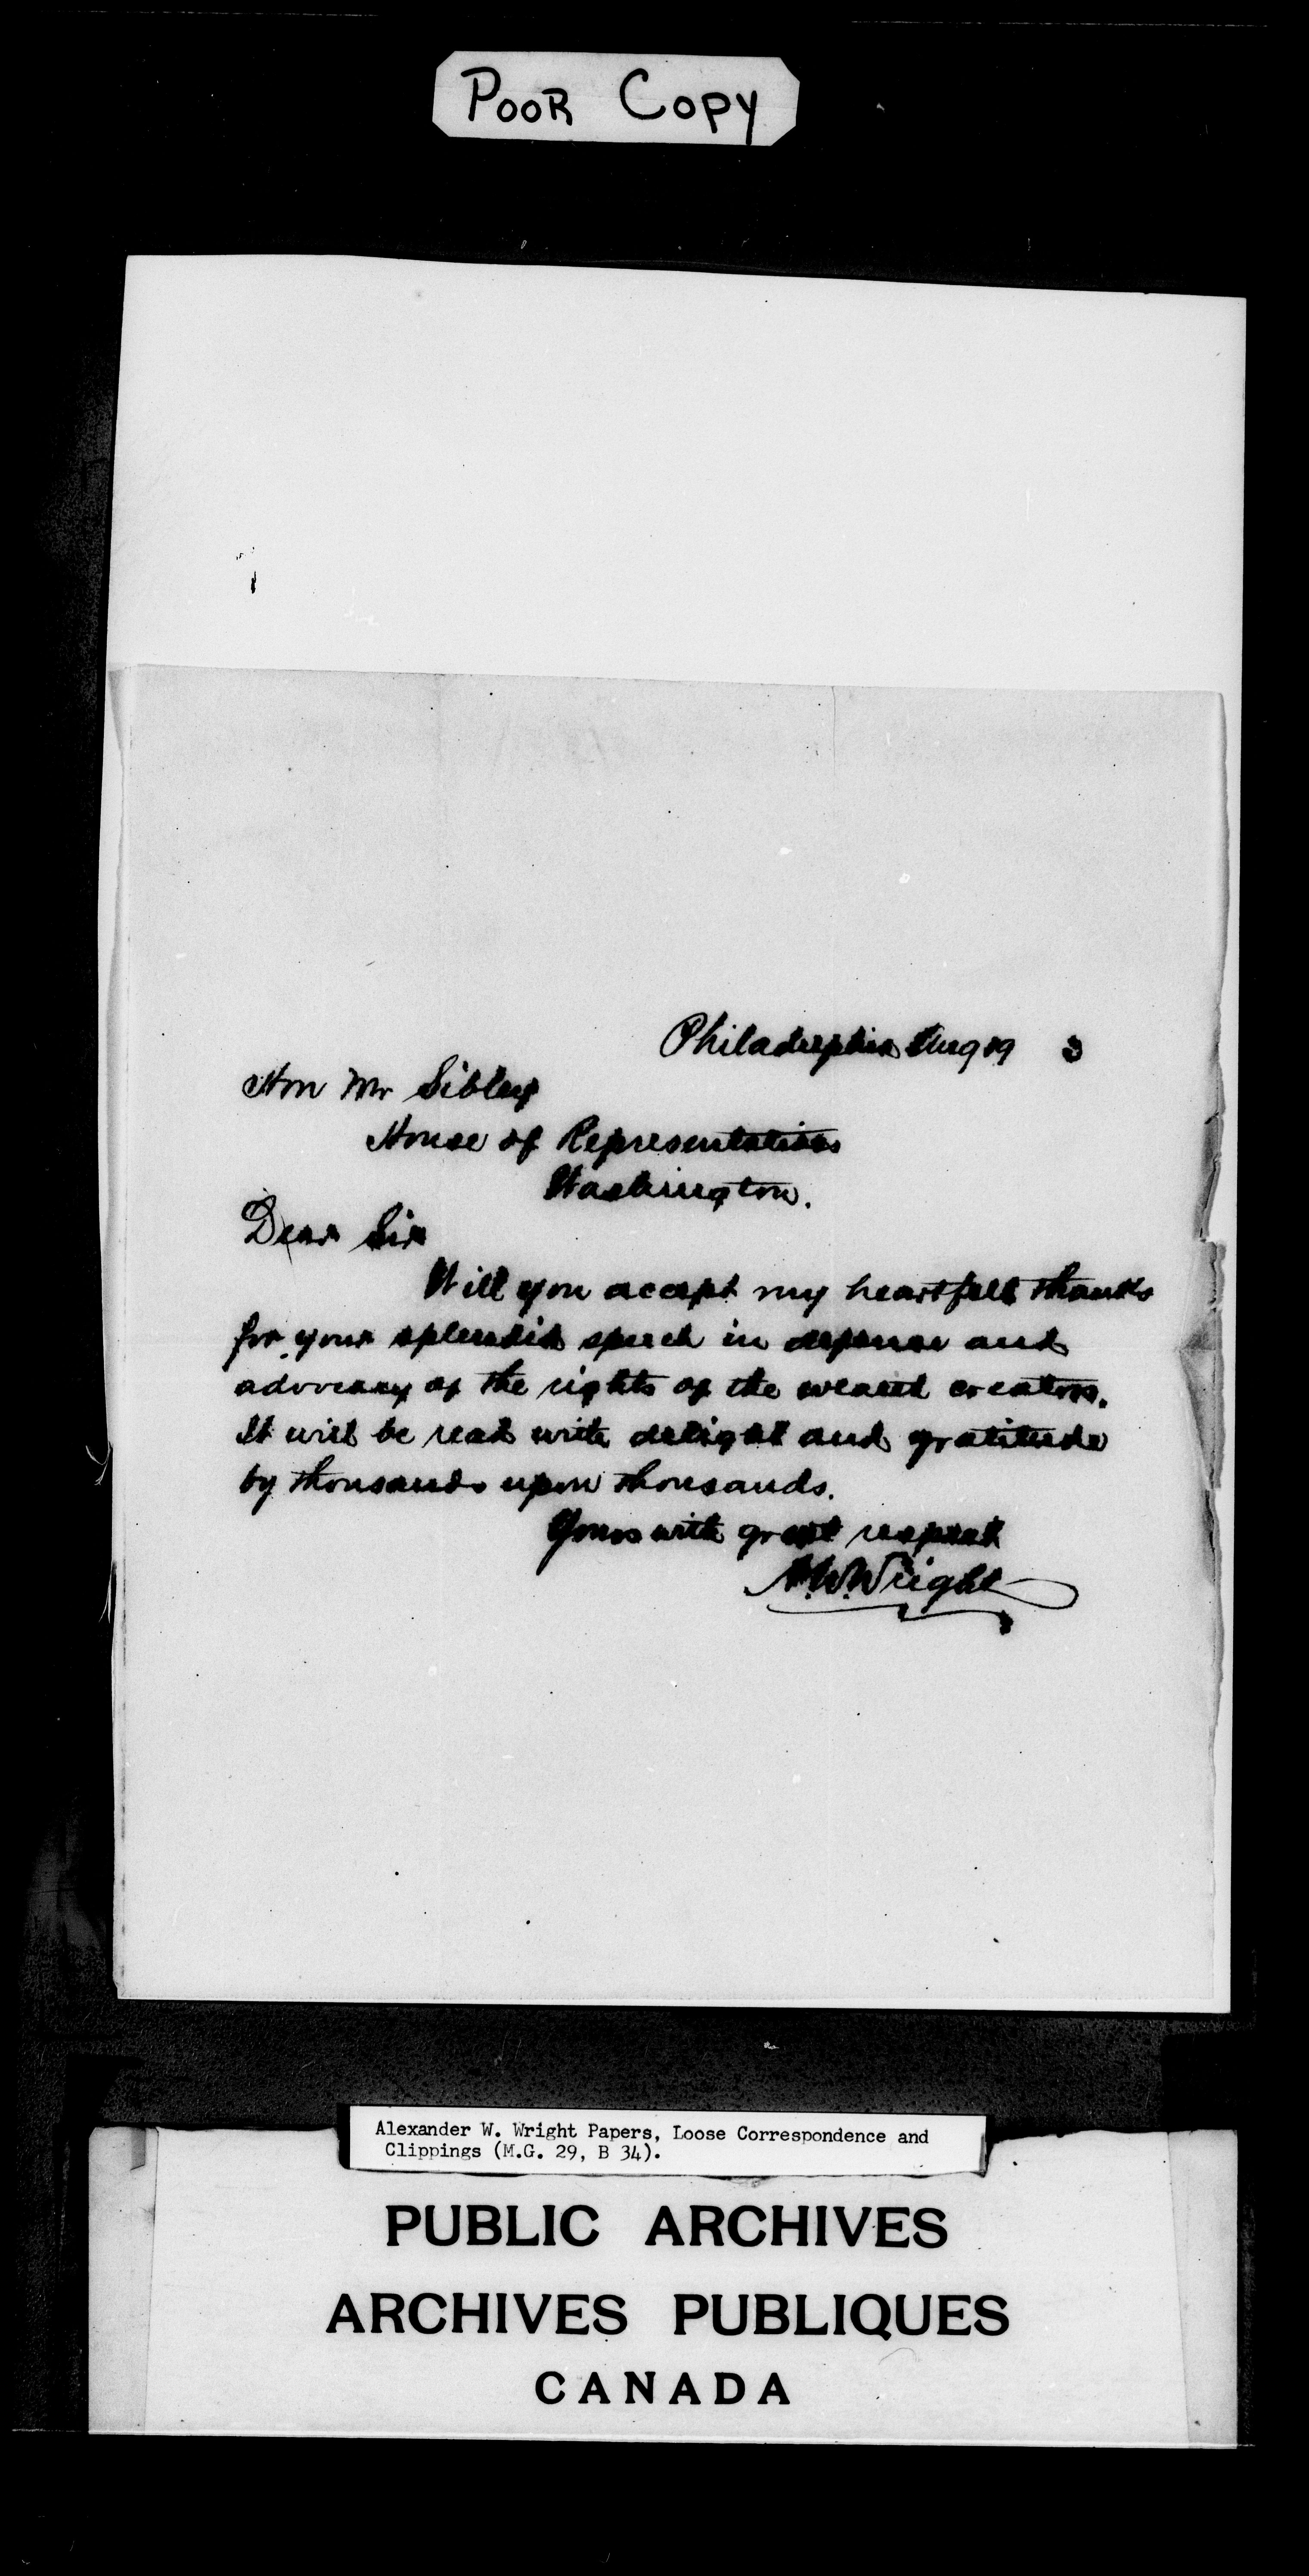 POOR COPY
Philadelphia Aug 19 3
Hon Mr Sibley
House of Representatives
Washington.
Dear Sir
Will you accept my heartfelt thanks
for your splendid speech in defense and
advocacy of the rights of the wealth creators.
It will be read with delight and gratitude
by thousands upon thousands.
Yours with great respect
A.W.Wright
Alexander W. Wright Papers, Loose Correspondence and
Clippings (M.G. 29, B 34).
PUBLIC ARCHIVES
ARCHIVES PUBLIQUES
CANADA